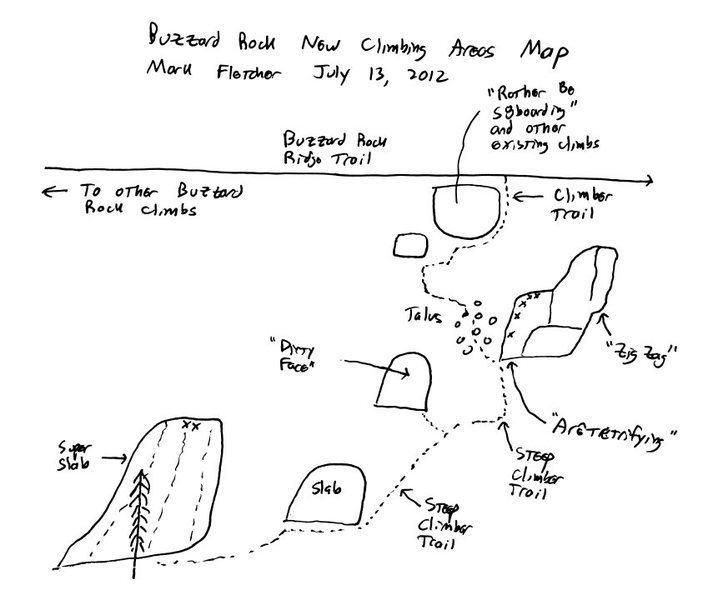 Buzzard Rock New Climbing Areas Map
Mark Fletcher July 13, 2012
"Rather Be
S&boarding"
and other
existing climbs
Buzzard Rock
Ridge Trail
← To other Buzzard
Rock climbs
← Climber
Trail
Talus
"Zig Zag"
"Dirty
Face"
"Aretetrifying"
Super
Slab
Steep
Climber
Trail
Slab
Steep
Climber
Trail